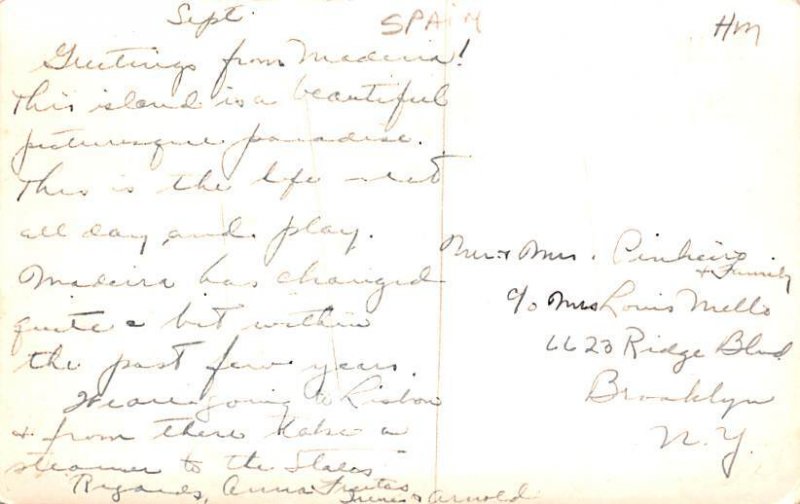 Sept.
SPAIN
HM
Greetings from Madeira!
This island is a beautiful
picturesque paradise.
This is the life rest
all day and play.
Madeira has changed
quite a bit within
the past few years.
We are going to Lisbon
+ from there take a
steamer to the States
Regards, Anna Freitas
+ Arnold
Mr + Mrs. Pinheiro
+ Family
c/o Mrs Louis Mello
6623 Ridge Blvd
Brooklyn
N.Y.